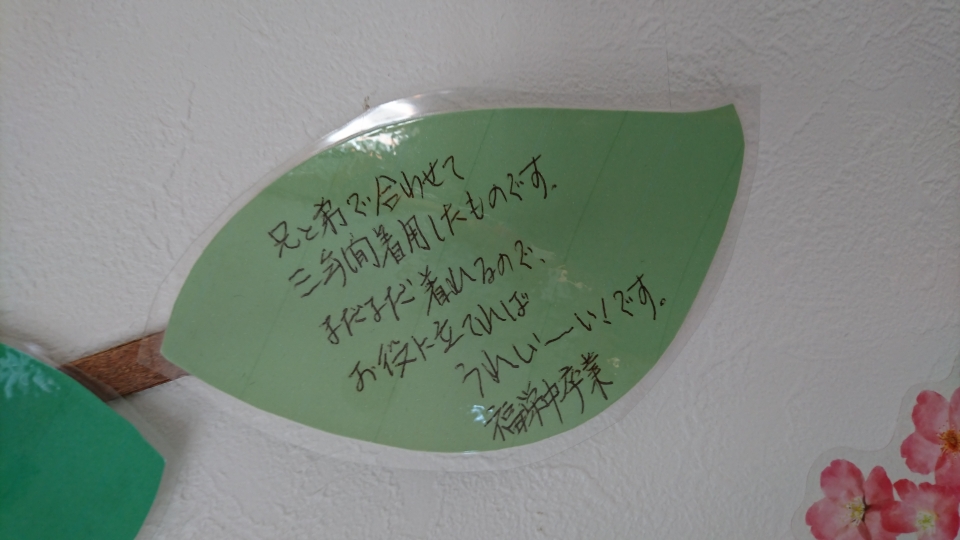 兄と弟で合わせて
三年間着用したものです。
まだまだ着れるので、
お役に立てれば
うれしい〜い!です。
福栄中卒業